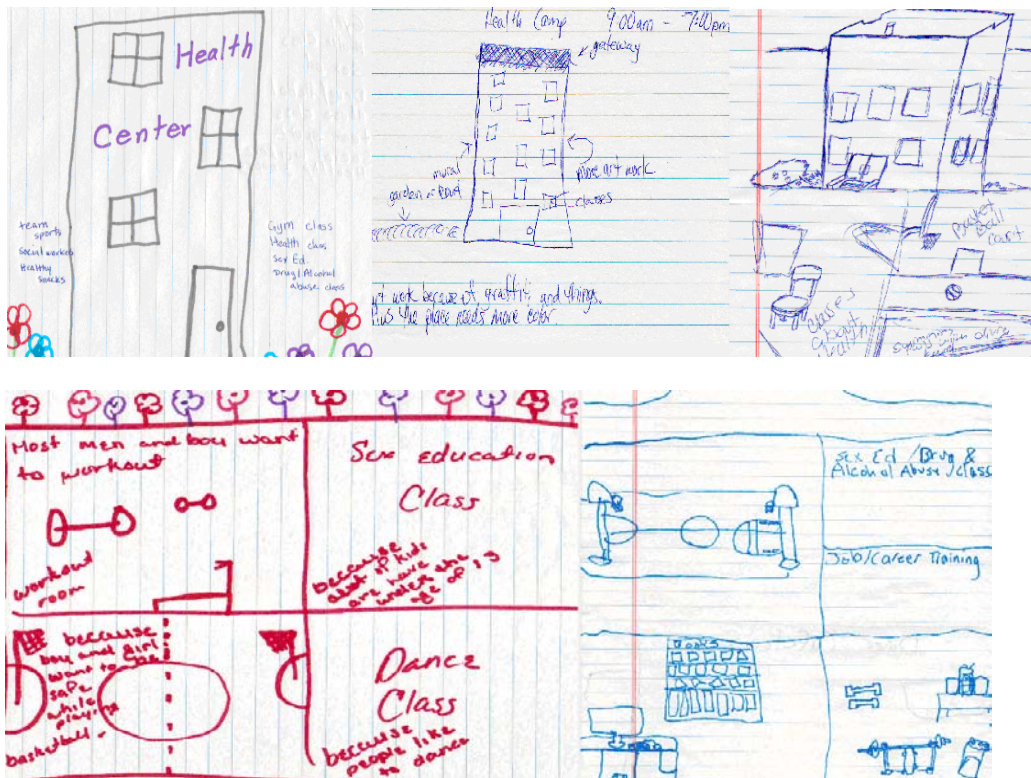 Health
Center
team
sports
Social worker
Healthy
snacks
Gym class
Health class
Sex Ed.
Drug/Alcohol
abuse class
Health Camp 9:00am - 7:00pm
gateway
mural
garden
more art work
classes
art work because of graffiti and things.
Plus the place needs more color.
Basket
Ball
Court
Classes
about
Health
Most men and boy want
to workout
workout
room
Sex education
Class
because
alot of kids
are have
under the
age of 13
because
boy and girl
want to be
safe
while
playing
basketball.
Dance
Class
because
people like
to dance
Sex Ed /Drug &
Alcohol Abuse /class
Job/Career Training